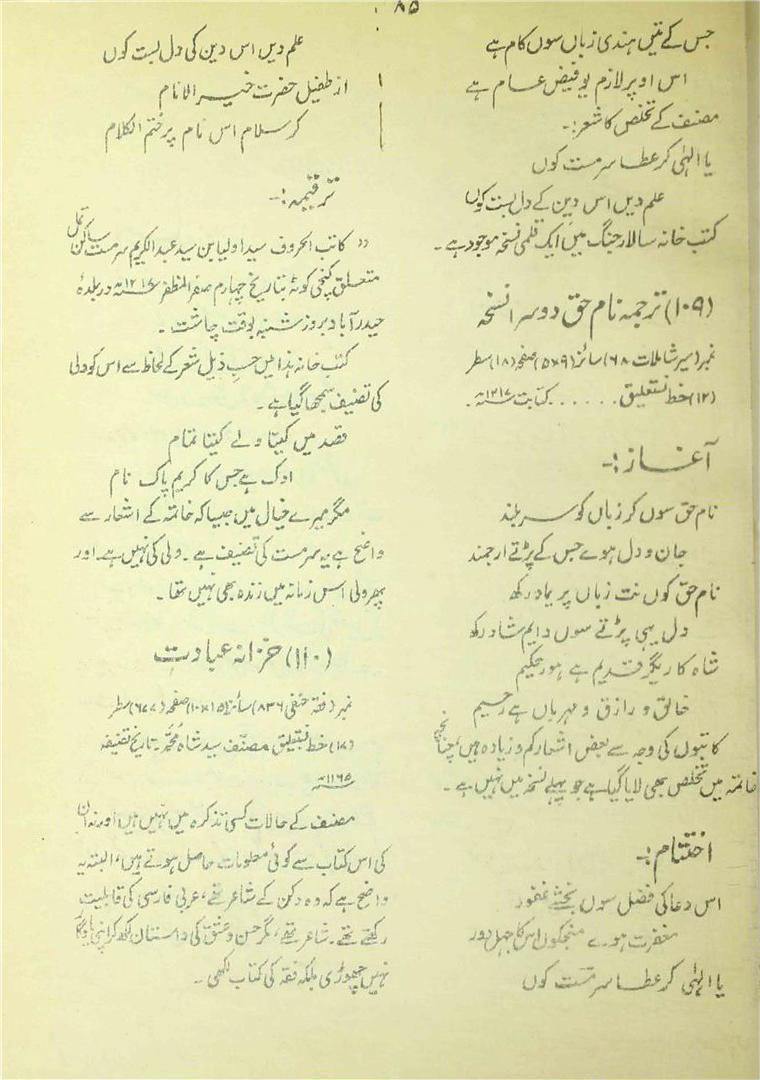 ۸۵
جس کے تئیں ہندی زباں سوں کام ہے
اس اوپر لازم یو فیض عام ہے
مصنف کے تخلص کا شعر:۔
یا الہٰی کر عطا سرمست کوں
علم دیں اس دین کے دل بست کوں
کتب خانہ سالار جنگ میں ایک قلمی نسخہ موجود ہے۔
(۱۰۹) ترجمہ نام حق دوسرا نسخہ
نمبر (سیر شاملات ۶۸) سائز (۹×۵) صفحہ (۱۸) سطر
(۱۲) خط نستعلیق ...... کتابت سنہ ۱۲۱۷ھ۔
آغاز:۔
نام حق سوں کر زباں کو سر بلند
جان و دل ہوے جس کے پڑتے ارجمند
نام حق کوں نت زباں پر یاد رکھ
دل یہی پڑتے سوں دایم شاد رکھ
شاہ کاریگر قدیم ہے ہور حکیم
خالق و رازق و مہرباں ہے رحیم
کاتبوں کی وجہ سے بعض اشعار کم و زیادہ ہیں، چنانچہ
خاتمہ میں تخلص بھی لایا گیا ہے جو پہلے نسخہ میں نہیں ہے۔
اختتام:۔
اس دعا کی فضل سوں بخشے غفور
مغفرت ہورے منجکوں اس کا جہل دور
یا الہٰی کر عطا سرمست کوں
علم دیں اس دین کی دل بست کوں
از طفیل حضرت خیر الانام
کر سلام اس نام پر ختم الکلام
ترقیمہ:۔
" کاتب الحروف سید اولیا بن سید عبدالکریم سرمست ساکن
متعلق گنجی کوٹہ بتاریخ چہارم صفر المظفر سنہ ۱۲۱۷ھ در بلدۂ
حیدرآباد بروز شنبہ بوقت چاشت۔
کتب خانہ ہذا میں حسب ذیل شعر کے لحاظ سے اس کو ولی
کی تصنیف سمجھا گیا ہے۔
قصد میں کیتا ولے کیتا تمام
اوک ہے جس کا کریم پاک نام
مگر میرے خیال میں جیسا کہ خاتمہ کے اشعار سے
واضح ہے یہ سرمست کی تصنیف ہے۔ ولی کی نہیں ہے۔ اور
پھر ولی اس زمانہ میں زندہ بھی نہیں تھا۔
(۱۱۰) خزانہ عبادت
نمبر (فقہ حنفی ۸۳۶) سائز (۱۵×۱۰) صفحہ (۶۷۷) سطر
(۱۷) خط نستعلیق مصنف سید شاہ محمد۔ تاریخ تصنیف
سنہ ۱۱۶۵ھ
مصنف کے حالات کسی تذکرہ میں نہیں ہیں اور نہ ان
کی اس کتاب سے کوئی معلومات حاصل ہوتے ہیں، البتہ یہ
واضح ہے کہ وہ دکن کے شاعر تھے، عربی فارسی کی قابلیت
رکھتے تھے۔ شاعر تھے، مگر حسن و عشق کی داستان لکھ کر اپنی یادگار
نہیں چھوڑی بلکہ فقہ کی کتاب لکھی۔